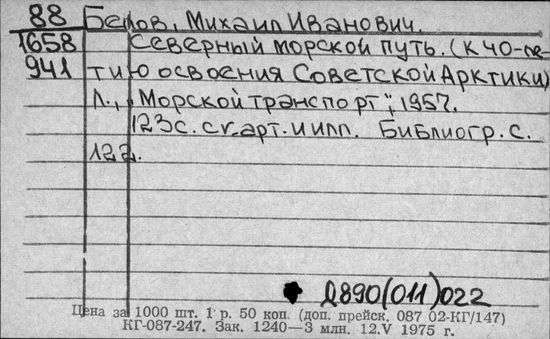 88 Белов, Михаил Иванович.
1658 Северный морской путь. (К 40-ле
941 тию освоения Советской Арктики)
Л., „Морской транспорт", 1957.
123с. с карт. и илл. Библиогр. с.
122.
Д890(011)022
Цена за 1000 шт. 1 р. 50 коп. (доп. прейск. 087 02-КГ/147)
КГ-087-247. Зак. 1240—3 млн. 12.V 1975 г.